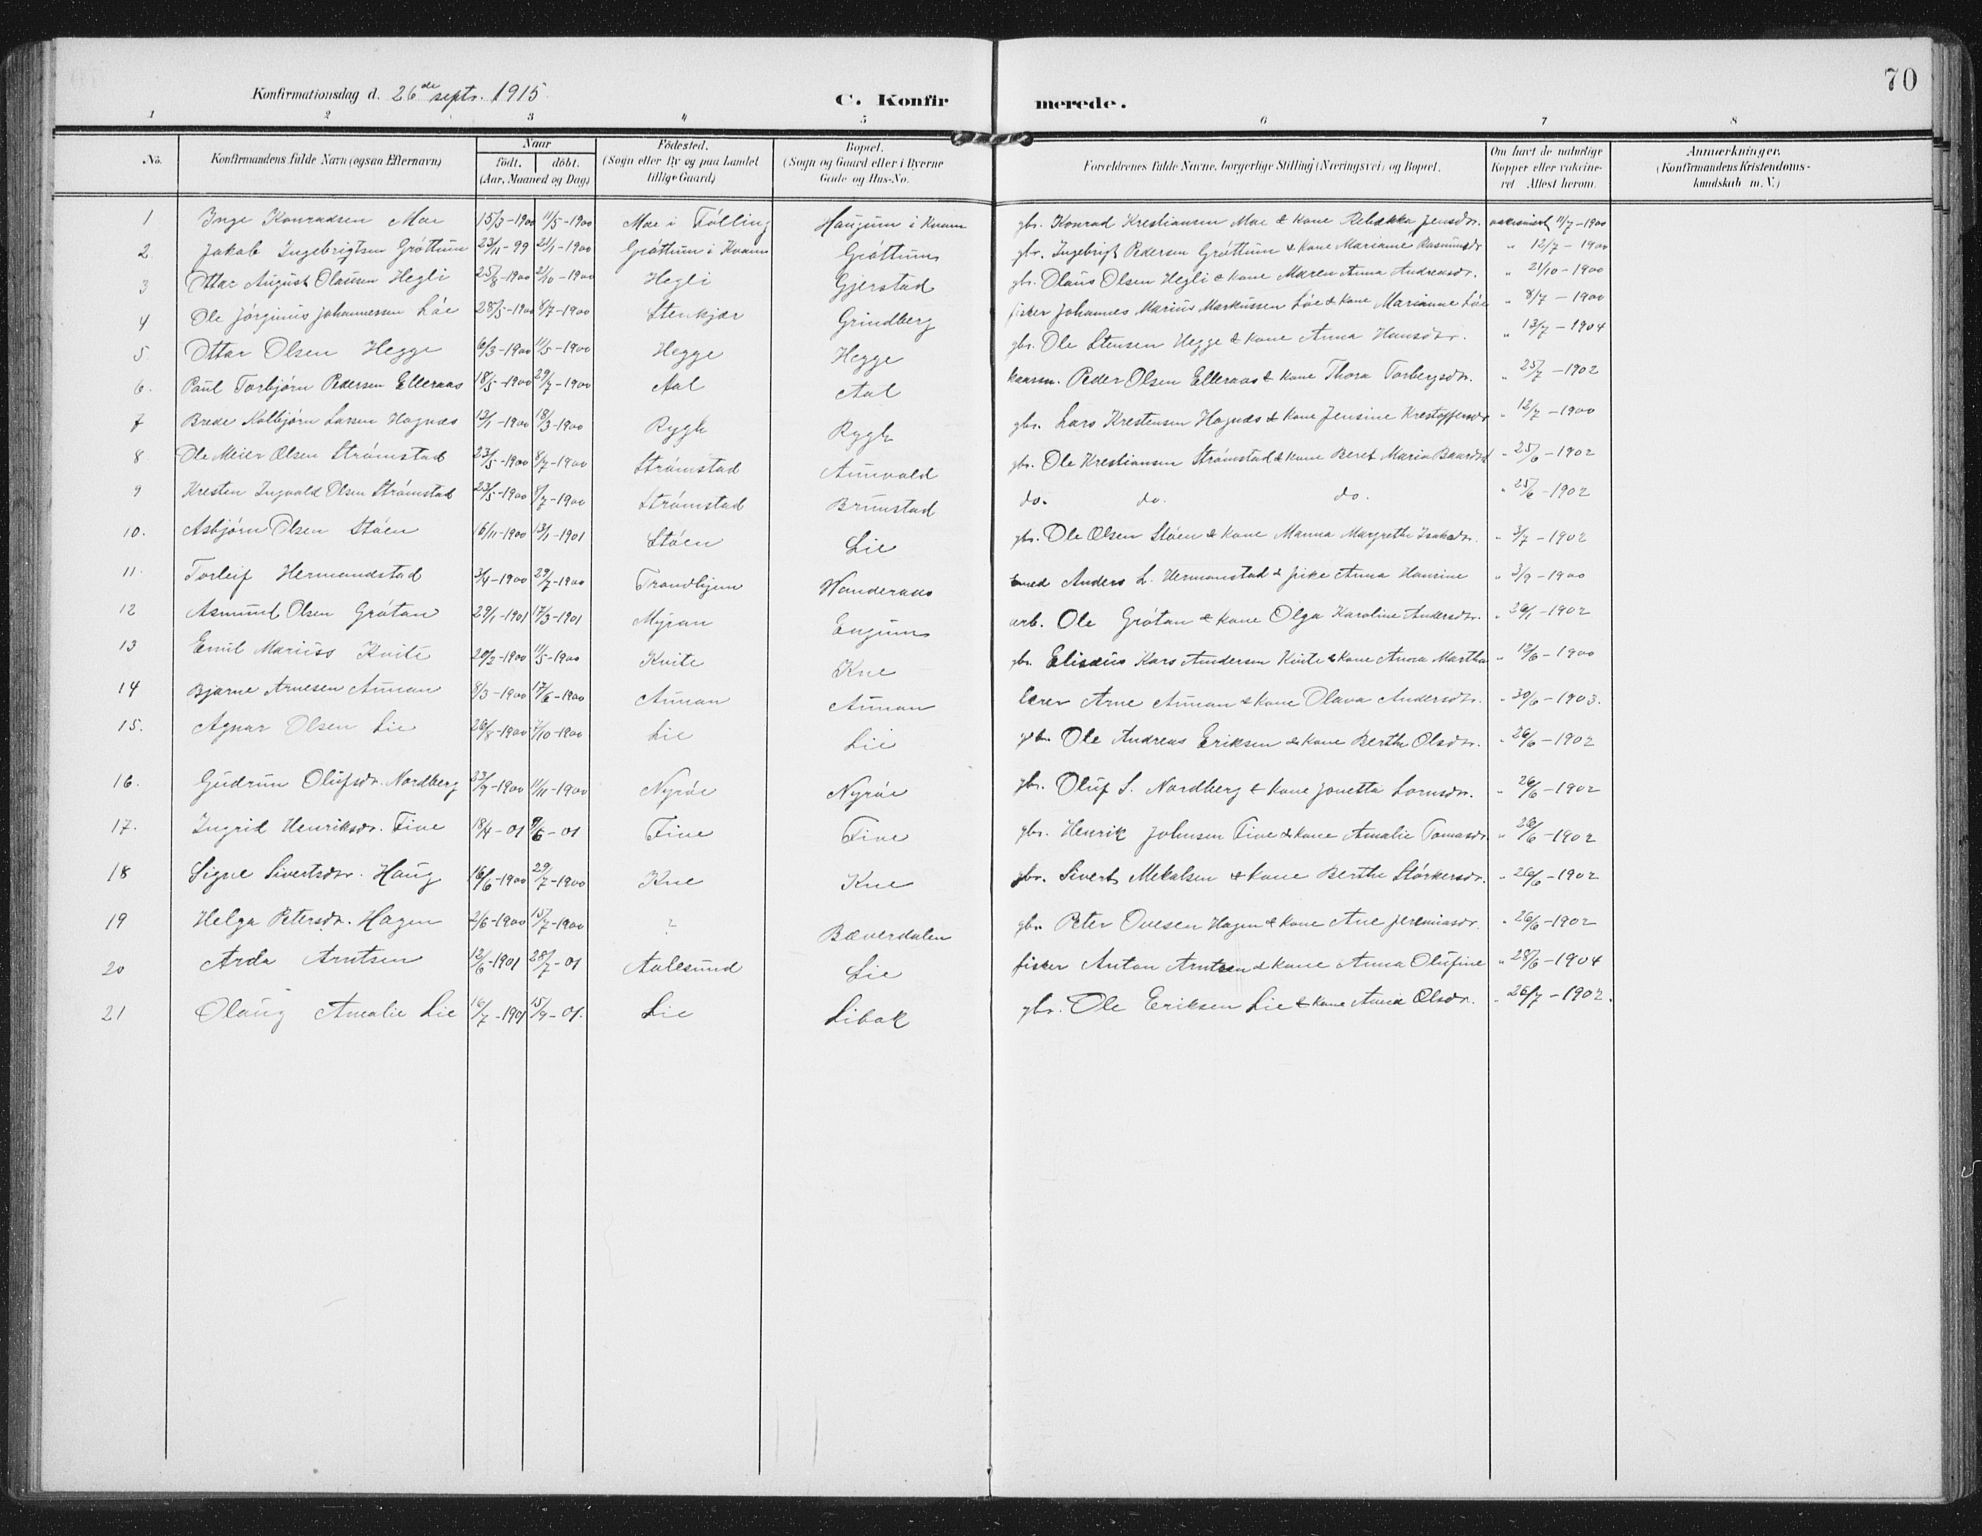 70
Konfirmationsdag d. 26de septr. 1915.
C. Konfirmerede.
1 2 3 4 5 6 7 8
No. Konfirmandens fulde Navn (ogsaa Efternavn) Naar født. døbt. (Aar, Maaned og Dag) Fødested. (Sogn eller By og paa Landet tillige Gaard) Bopæl. (Sogn og Gaard eller i Byerne Gade og Hus-No. Forældrenes fulde Navne, borgerlige Stilling (Næringsvei) og Bopæl. Om havt de naturlige Kopper eller vakcineret. Attest herom. Anmærkninger. (Konfirmandens Kristendomskundskab m. V.)
1 Inge Konradsen Moe 15/3-1900 11/5-1900 Moe i Følling Haugum i Kvam gbr. Konrad Kristiansen Moe & kone Rebekka Jensdr. vaksinert 11/7-1900
2. Jakob Ingebrigtsen Grøttum 23/11-99 21/1-1900 Grøttum i Kvam Grøttum gbr. Ingebrigt Pedersen Grøttum & kone Marianne Rasmusdr. " 12/7-1900
3 Ottar August Olausen Hegli 25/8-1900 21/10-1900 Hegli Gjerstad gbr. Olaus Olsen Hegli & kone Maren Anna Andreasdr. " 21/10-1900
4 Ole Jørginus Johannessen Løe 28/5-1900 8/7-1900 Stenkjær Grindberg fisker Johannes Marius Markussen Løe & kone Marianne Løe " 8/7-1900
5. Ottar Olsen Hegge 6/3-1900 11/5-1900 Hegge Hegge gbr. Ole Stensen Hegge & kone Anna Hansdr. " 13/7-1904
6. Paul Torbjørn Pedersen Elleraas 18/5-1900 29/7-1900 Aal Aal husm. Peder Olsen Elleraas & kone Thora Torbergsdr. " 25/7-1902
7 Brede Kolbjørn Larsen Hagnæs 13/1-1900 18/3-1900 Rygh Rygh gbr. Lars Krestensen Hagnæs & kone Jensine Krestoffersdr " 12/7-1900
8. Ole Meier Olsen Strømstad 23/5-1900 8/7-1900 Strømstad Aunvold gbr. Ole Krestiansen Strømstad & kone Beret Maria Baardsd " 25/6-1902
9 Kresten Ingvald Olsen Strømstad 23/5-1900 8/7-1900 Strømstad Brunstad do. do. do. " 25/6-1902
10. Asbjørn Olsen Støen 16/11-1900 13/1-1901 Støen Lie gbr. Ole Olsen Støen & kone Manna Margrethe Isaksdr. " 3/7-1902
11. Torleif Hermandstad 3/4-1900 29/7-1900 Trondhjem Wanderaas Anders L. Hermanstad & pike Anna Hansine " 3/9-1900
12 Asmund Olsen Grøtan 29/1-1901 17/3-1901 Myran Engum arb. Ole Grøtan & kone Olga Karoline Andersdr. " 20/1-1902
13 Emil Mariiss Kvite 20/2-1900 11/5-1900 Kvite Kne gbr. Eliseus Kars Andersen Kvite & kone Anna Martha " 10/6-1900
14 Bjarne Arnesen Aunan 8/3-1900 17/6-1900 Aunan Aunan lærer Arne Aunan & kone Olava Andersdr. " 30/6-1903.
15. Agnar Olsen Lie 26/8-1900 7/10-1900 Lie Lie gbr. Ole Andreas Eriksen & kone Berthe Olsdr. " 26/6-1902
16. Gudrun Olufsdr. Nordberg 23/9-1900 11/11-1900 Nyrøe Nyrøe gbr. Oluf S. Nordberg & kone Jonetta Lornsdr. " 26/6-1902
17. Ingrid Henriksdr. Five 18/4-01 9/6-01 Five Five gbr. Henrik Johnsen Five & kone Amalie Tomasdr " 28/6-1902
18 Signe Sivertsdr. Haug 16/6-1900 29/7-1900 Kne Kne gbr. Sivert Mekalsen & kone Berthe Størkersdr. " 26/6-1902
19 Helga Petersdr. Hagen 2/6-1900 15/7-1900 " Bæverdalen gbr. Peter Ovesen Hagen & kone Ane Jeremiasdr. " 26/6-1902
20 Arda Arntsen 12/6-1901 28/7-01 Aalesund Lie fisker Anton Arntsen & kone Anna Olufine " 28/6-1904
21 Olaug Amalie Lie 16/7-1901 15/9-01. Lie Libak gbr. Ole Eriksen Lie & kone Anna Olsdr. " 26/7-1902.